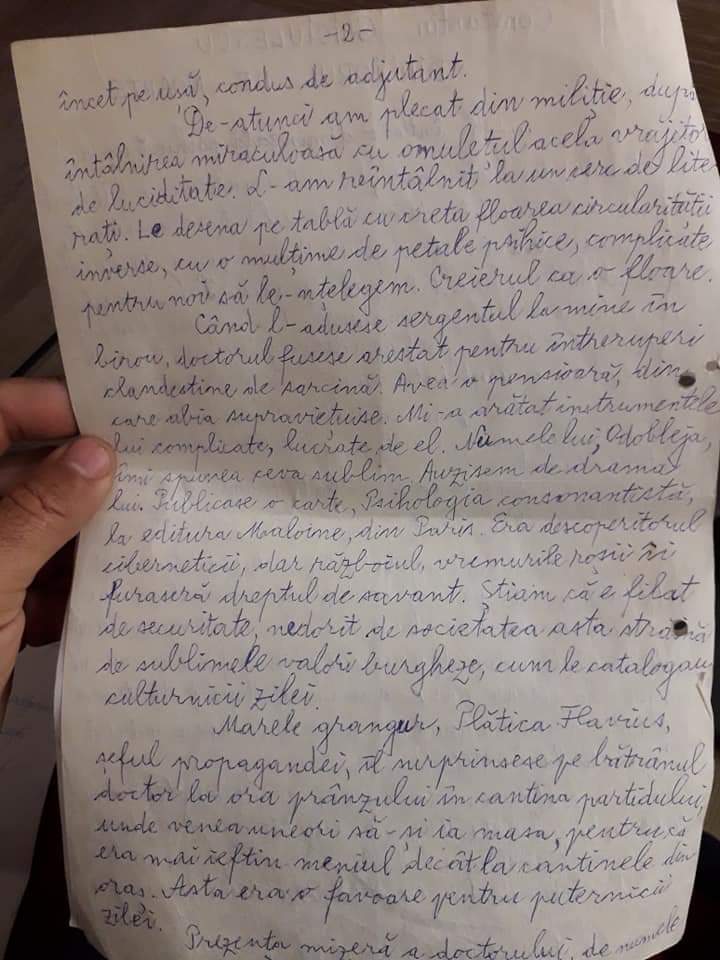 -2-
încet pe ușă, condus de adjutant.
De-atunci am plecat din miliție, după
întâlnirea miraculoasă cu omulețul acela vrajitor
de luciditate. L-am reîntâlnit la un cerc de lite-
rați. Le desena pe tablă cu creta floarea circularității
inverse, cu o mulțime de petale psihice, complicate
pentru noi să le-nțelegem. Creierul ca o floare.
Când l-adusese sergentul la mine în
birou, doctorul fusese arestat pentru întreruperi
clandestine de sarcină. Avea o pensioară, din
care abia supraviețuise. Mi-a arătat instrumentele
lui complicate, lucrate de el. Numele lui, Odobleja,
îmi spunea ceva sublim. Auzisem de drama
lui. Publicase o carte, Psihologia consonantistă,
la editura Maloine, din Paris. Era descoperitorul
ciberneticii, dar războiul, vremurile roșii îi
furaseră dreptul de savant. Știam că e filat
de securitate, nedorit de societatea asta străină
de sublimele valori burgheze, cum le catalogau
culturnicii zilei.
Marele grangur, Plătica Flavius,
șeful propagandei, îl surprinsese pe bătrânul
doctor la ora prânzului în cantina partidului,
unde venea uneori să-și ia masa, pentru că
era mai ieftin meniul decât la cantinele din
oraș. Asta era o favoare pentru puternicii
zilei.
Prezența mizeră a doctorului, de numele